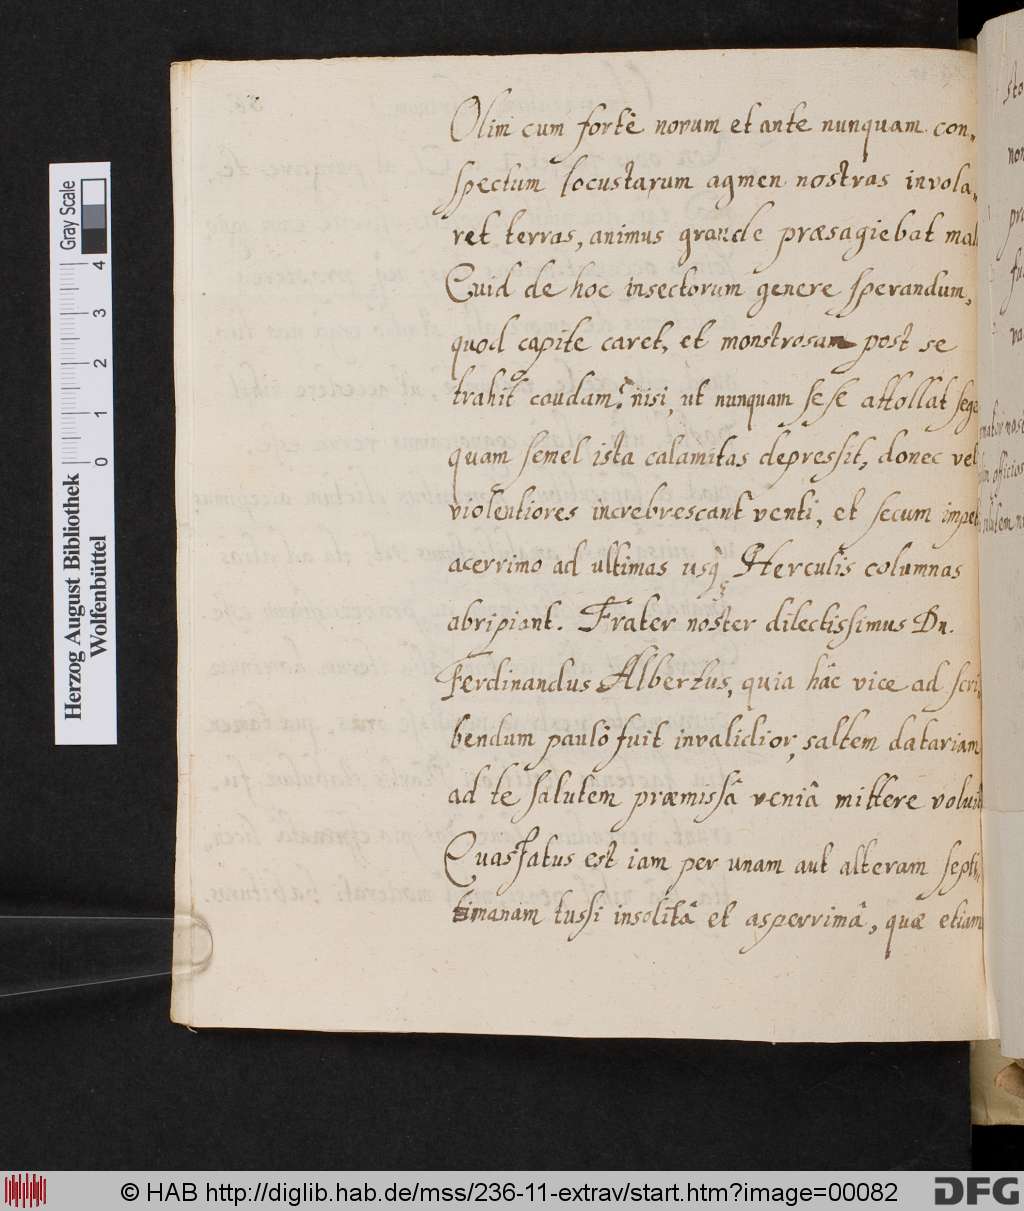 Olim cum fortè novum et ante nunquam con-
spectum locustarum agmen nostras invola-
ret terras, animus grande præsagiebat mal
Quid de hoc insectorum genere sperandum,
quod capite caret, et monstrosam post se
trahit caudam? nisi, ut nunquam sese attollat sege
quam semel ista calamitas depressit, donec vel
violentiores increbrescant venti, et secum impet
acerrimo ad ultimas usq; Herculis columnas
abripiant. Frater noster dilectissimus Dn.
Ferdinandus Albertus, quia hâc vice ad scri
bendum paulò fuit invalidior, saltem datariam
ad te salutem præmissâ veniâ mittere voluit
Quassatus est iam per unam aut alteram septi-
timanam tussi insolitâ et asperrimâ, quæ etiam
Herzog August Bibliothek
Wolfenbüttel
Gray Scale
0 1 2 3 4
© HAB http://diglib.hab.de/mss/236-11-extrav/start.htm?image=00082
DFG